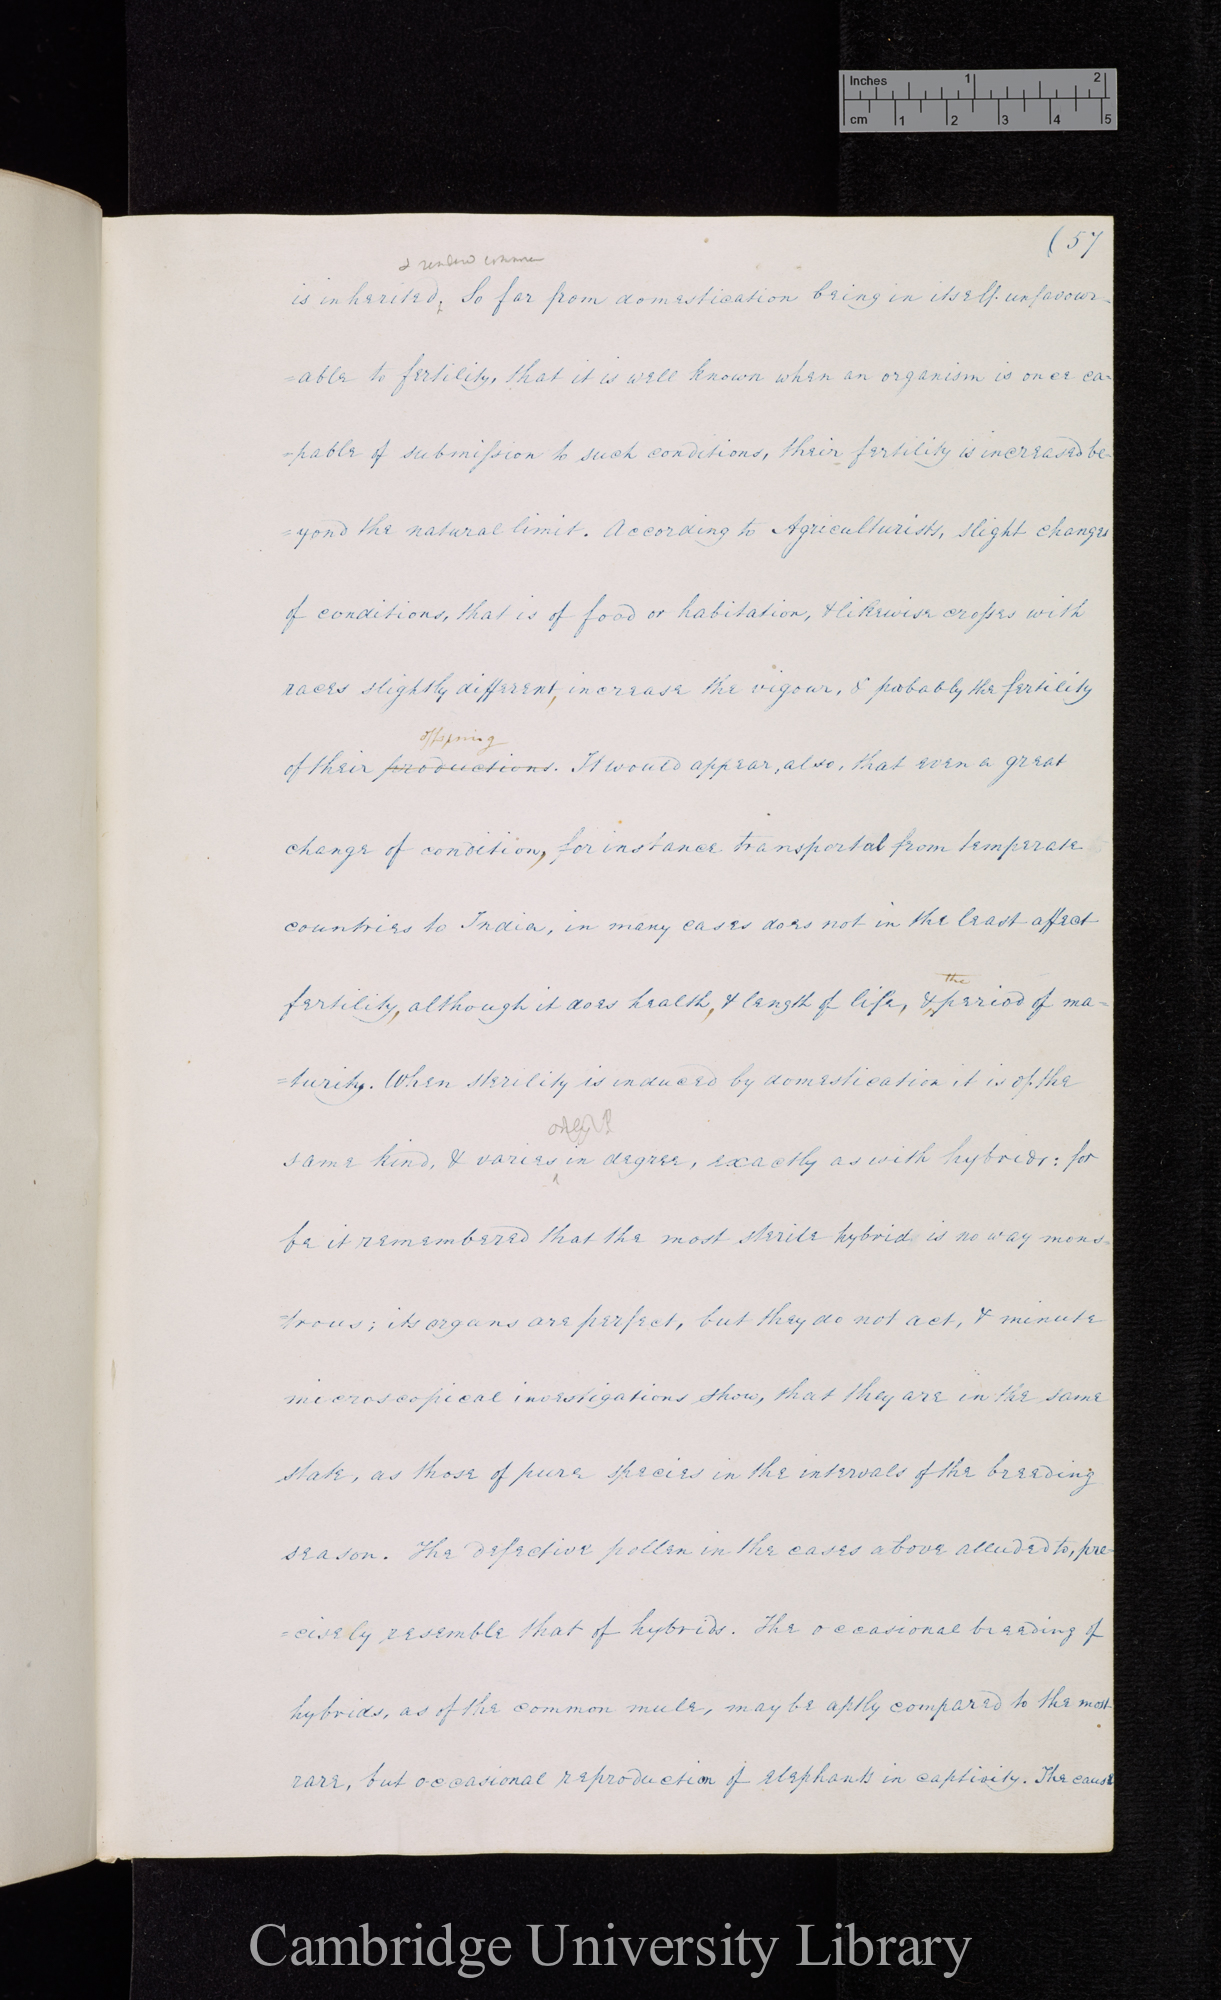 Inches 1 2
cm 1 2 3 4 5
(57
& rendered common
is inherited; So far from domestication being in itself unfavour-
=able to fertility, that it is well known when an organism is once ca-
=pable of submission to such conditions, their fertility is increased be-
=yond the natural limit. According to Agriculturists, slight changes
of conditions, that is of food or habitation, & likewise crosses with
races slightly different, increase the vigour, & probably the fertility
offspring
of their productions. It would appear, also, that even a great
change of condition, for instance transportal from temperate
countries to India, in many cases does not in the least affect
the
fertility, although it does health, & length of life, & period of ma-
=turity. When sterility is induced by domestication it is of the
only?
same kind, & varies in degree, exactly as with hybrids: for
be it remembered that the most sterile hybrid is no way mons-
=trous; its organs are perfect, but they do not act, & minute
microscopical investigations show, that they are in the same
state, as those of pure species in the intervals of the breeding
season. The defective pollen in the cases above alluded to, pre-
=cisely resemble that of hybrids. The occasional breeding of
hybrids, as of the common mule, may be aptly compared to the most
rare, but occasional reproduction of elephants in captivity. The cause
Cambridge University Library